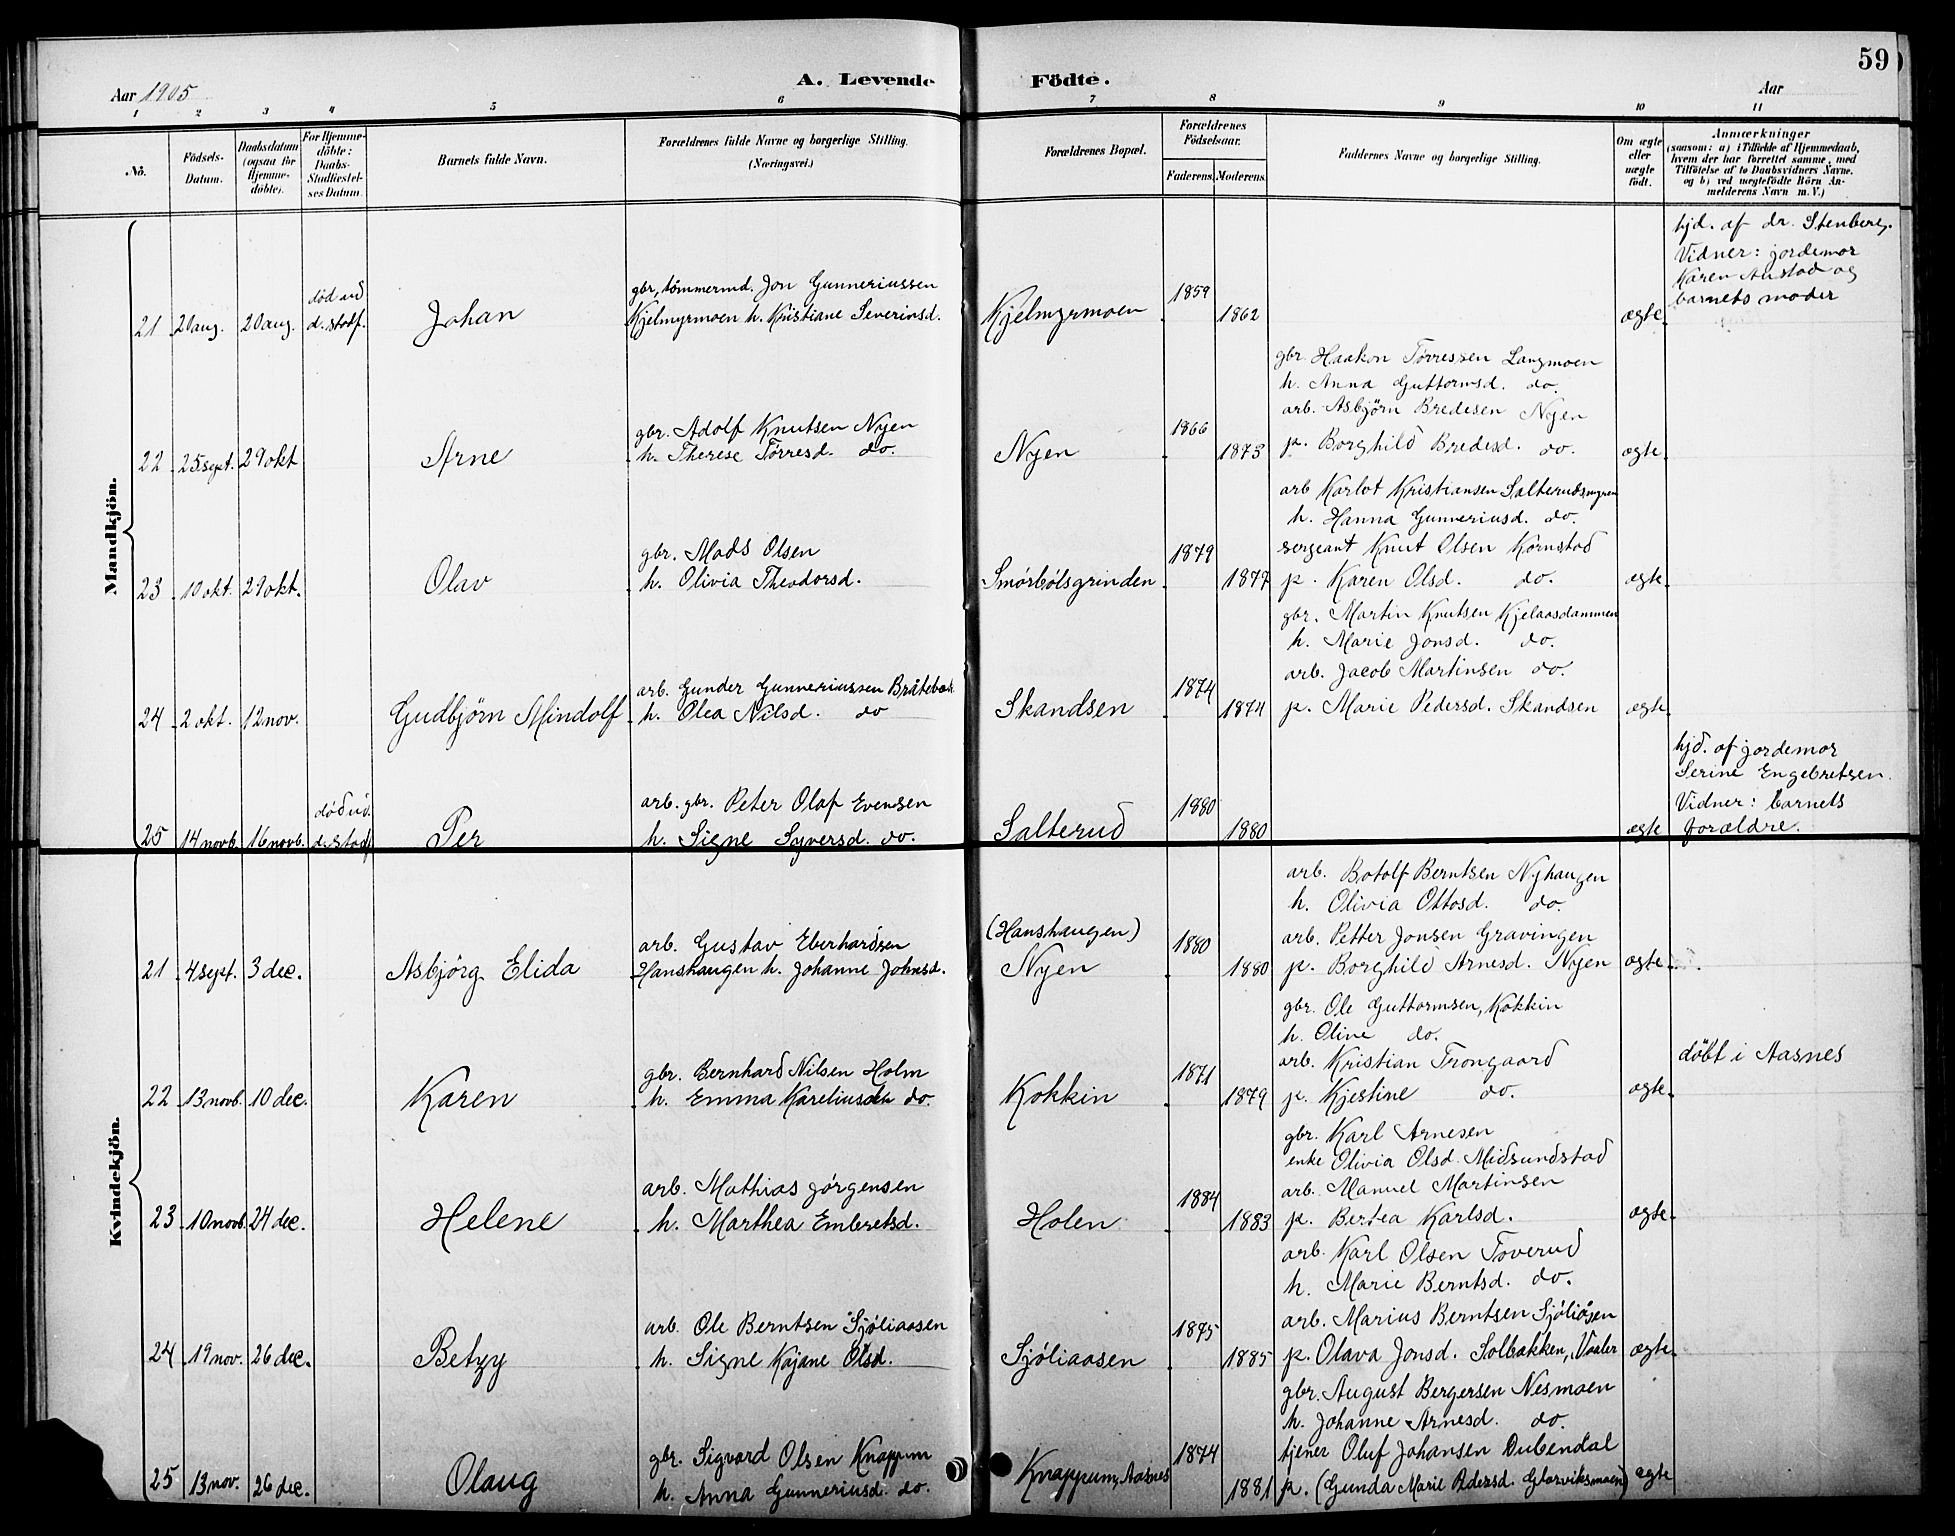 59
Aar 1905
A. Levende Födte.
Aar
1 2 3 4 5 6 7 8 9 10 11
No.
Födsels-Datum.
Daabsdatum (ogsaa for Hjemme-döbte).
For Hjemme-döbte: Daabs-Stadfæstel-ses Datum.
Barnets fulde Navn.
Forældrenes fulde Navne og borgerlige Stilling. (Næringsvei.)
Forældrenes Bopæl.
Forældrenes Födselsaar.
Faderens. Moderens.
Faddernes Navne og borgerlige Stilling.
Om ægte eller uægte födt.
Anmærkninger
(saasom: a) i Tilfælde af Hjemmedaab,
hvem der har forrettet samme, med
Tilföielse af to Daabsvidners Navne.
og b) ved uægtefödte Börn An-
melderens Navn m. V.)
Mandkjön.
21 20 aug. 20 aug.
død ud
d. stdf.
Johan
gbr, tömmermd. Jon Gunneriussen
Kjelmyrmoen h. Kristiane Severinsd.
Kjelmyrmoen
1859
1862
ægte
hjd. af dr. Stenberg.
Vidner: jordemor
Karen Austad og
barnets moder
22 25 sept. 29 okt
Arne
gbr. Adolf Knutsen Nyen
h. Therese Törresd. do.
Nyen
1866
1873
gbr. Haakon Törressen Langmoen
h. Anna Guttormsd. do.
arb. Asbjørn Bredesen Nyen
p. Borghild Bredesd. do.
ægte
23 10 okt. 29 okt.
Olav
gbr. Mads Olsen
h. Olivia Theodorsd.
Smörbölsgrinden
1879
1877
arb Karlot Kristiansen Salterudsmyren
h. Hanna Gunneriusd. do.
sergeant Knut Olsen Kornstad
p. Karen Olsd. do.
ægte
24 2 okt. 12 nov.
Gudbjörn Mindolf
arb. Gunder Gunneriussen Bråtebæk
h. Olea Nilsd. do
Skandsen
1874
1874
gbr. Martin Knutsen Kjelaasdammen
h. Marie Jonsd. do.
arb. Jacob Martinsen do.
p. Marie Pedersd. Skandsen
ægte
25 14 novb. 16 novb.
død ud.
d. stadf
Per
arb. gbr. Peter Olaf Evensen
h. Signe Syversd. do.
Salterud
1880
1880
ægte
hjd. af jordemor
Serine Engebretsen.
Vidner: barnets
forældre.
Kvindekjön.
21 4 sept. 3 dec.
Asbjörg Elida
arb. Gustav Eberhardsen
Hanshaugen h. Johanne Johnsd.
(Hanshaugen)
Nyen
1880
1880
arb. Botolf Berntsen Nyhaugen
h. Olivia Ottosd. do.
arb. Petter Jonsen Gravingen
p. Borghild Arnesd. Nyen
ægte
22 13 novb. 10 dec.
Karen
gbr. Bernhard Nilsen Holm
h. Emma Kareliusd. do.
Kokkin
1871
1879
gbr. Ole Guttormsen, Kokkin
h. Oline do.
arb. Kristian Trongaard
p. Kjestine do.
ægte
döbt i Aasnes
23 10 novb. 24 dec.
Helene
arb. Mathias Jörgensen
h. Marthea Embretsd.
Holen
1884
1883
gbr. Karl Arnesen
enke Olivia Olsd. Midsundstad
arb. Manuel Martinsen
p. Bertea Karlsd.
ægte
24 19 nov. 26 dec.
Betzy
arb. Ole Berntsen Sjöliaasen
h. Signe Kajane Olsd.
Sjöliaasen
1875
1885
arb. Karl Olsen Toverud
h. Marie Berntsd. do.
arb. Marius Berntsen Sjöliåsen
p. Olava Jonsd. Solbakken, Vaaler
ægte
25 13 nov. 26 dec.
Olaug
gbr. Sigvard Olsen Knappum
h. Anna Gunneriusd. do.
Knappum, Aasnes
1874
1881
gbr. August Bergersen Nesmoen
h. Johanne Arnesd. do.
tjener Oluf Johansen Dubendal
p. (Gunda Marie Pedersd. Glorviksmoen)
ægte